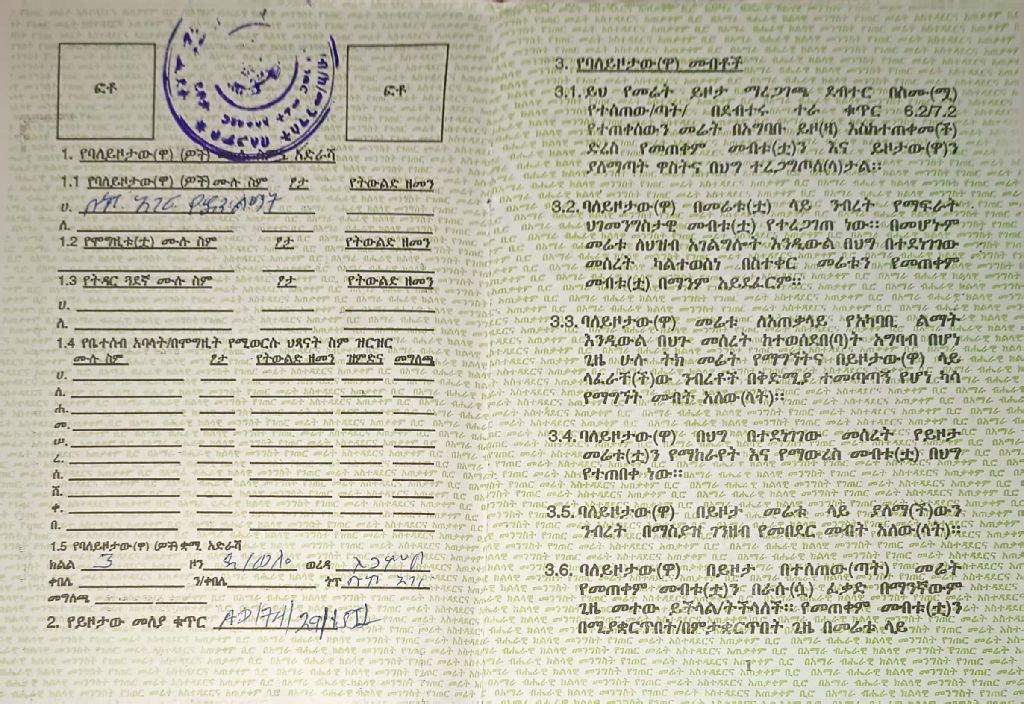 ፎቶ
ፎቶ
1. የባለይዞታው(ዋ) (ዎች) ሙሉ ስም አድራሻ
1.1 የባለይዞታው(ዋ) (ዎች) ሙሉ ስም ፆታ የትውልድ ዘመን
ሀ.
ለ.
1.2 የሞግዚቱ(ቷ) ሙሉ ስም ፆታ የትውልድ ዘመን
1.3 የትዳር ጓደኛ ሙሉ ስም ፆታ የትውልድ ዘመን
ሀ.
ለ.
1.4 የቤተሰብ አባላት/በሞግዚት የሚወርሱ ህጻናት ስም ዝርዝር
ሙሉ ስም ፆታ የትውልድ ዘመን ዝምድና መግለጫ
ሀ.
ለ.
ሐ.
መ.
ሠ.
ረ.
ሰ.
ሸ.
ቀ.
በ.
1.5 የባለይዞታው(ዋ) (ዎች) ቋሚ አድራሻ
ክልል 3 ዞን ደ/ወሎ ወረዳ
ቀበሌ ን/ቀበሌ ጎጥ
መግለጫ
2. የይዞታው መለያ ቁጥር AD/74/29/
3. የባለይዞታው(ዋ) መብቶች
3.1. ይህ የመሬት ይዞታ ማረጋገጫ ደብተር በስሙ(ሟ)
የተሰጠው/ጣት/ በደብተሩ ተራ ቁጥር 6.2/7.2
የተጠቀሰውን መሬት በአግባቡ ይዞ(ዛ) እስከተጠቀመ(ች)
ድረስ የመጠቀም መብቱ(ቷ)ን እና ይዞታው(ዋ)ን
ያለማጣት ዋስትና በህግ ተረጋግጦለ(ላ)ታል።
3.2. ባለይዞታው(ዋ) በመሬቱ(ቷ) ላይ ንብረት የማፍራት
ህገመንግስታዊ መብቱ(ቷ) የተረጋገጠ ነው። በመሆኑም
መሬቱ ለህዝብ አገልግሎት እንዲውል በህግ በተደነገገው
መሰረት ካልተወሰነ በስተቀር መሬቱን የመጠቀም
መብቱ(ቷ) በማንም አይደፈርም።
3.3. ባለይዞታው(ዋ) መሬቱ ለአጠቃላይ የአካባቢ ልማት
እንዲውል በህጉ መሰረት ከተወሰደበ(ባ)ት አግባብ በሆነ
ጊዜ ሁሉ ትክ መሬት የማግኘትና በይዞታው(ዋ) ላይ
ላፈራቸ(ች)ው ንብረቶች በቅድሚያ ተመጣጣኝ የሆነ ካሳ
የማግኘት መብት አለው(ላት)።
3.4. ባለይዞታው(ዋ) በህግ በተደነገገው መሰረት የይዞታ
መሬቱ(ቷ)ን የማከራየት እና የማውረስ መብቱ(ቷ) በህግ
የተጠበቀ ነው።
3.5. ባለይዞታው(ዋ) በይዞታ መሬቱ ላይ ያለማ(ች)ውን
ንብረት በማስያዝ ገንዘብ የመበደር መብት አለው(ላት)።
3.6. ባለይዞታው(ዋ) በይዞታ በተሰጠው(ጣት) መሬት
የመጠቀም መብቱ(ቷ)ን በራሱ(ሷ) ፈቃድ በማንኛውም
ጊዜ መተው ይችላል/ትችላለች። የመጠቀም መብቱ(ቷ)ን
በሚያቋርጥበት/በምታቋርጥበት ጊዜ በመሬቱ ላይ
1